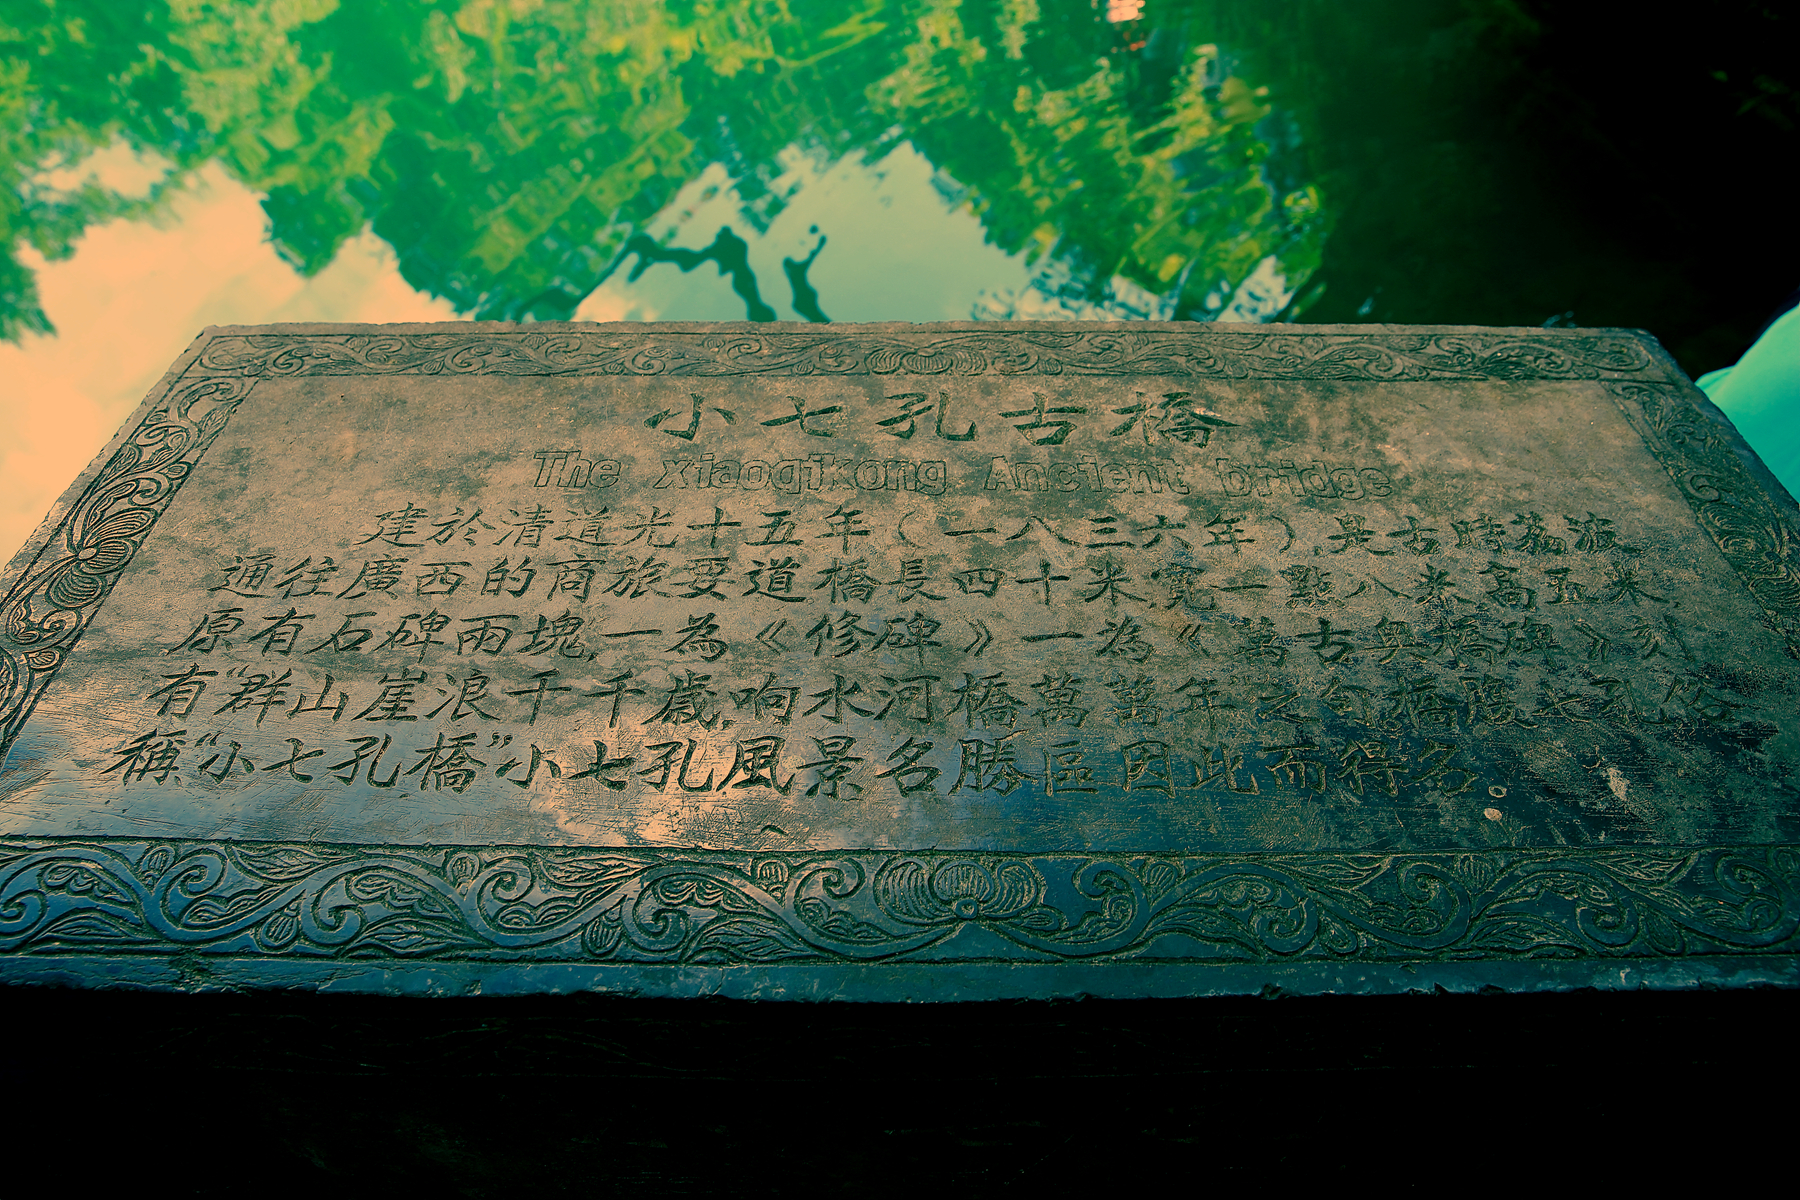 小七孔古橋
The xiaoqikong Ancient bridge
建於清道光十五年（一八三六年），是古時荔波
通往廣西的商旅要道，橋長四十米，寬一點八米，高五米，
原有石碑兩塊，一為《修碑》一為《萬古奧橋碑》刻
有“群山崖浪千千歲，响水河橋萬萬年”之句，橋獲七孔，俗
稱“小七孔橋”小七孔風景名勝區因此而得名。